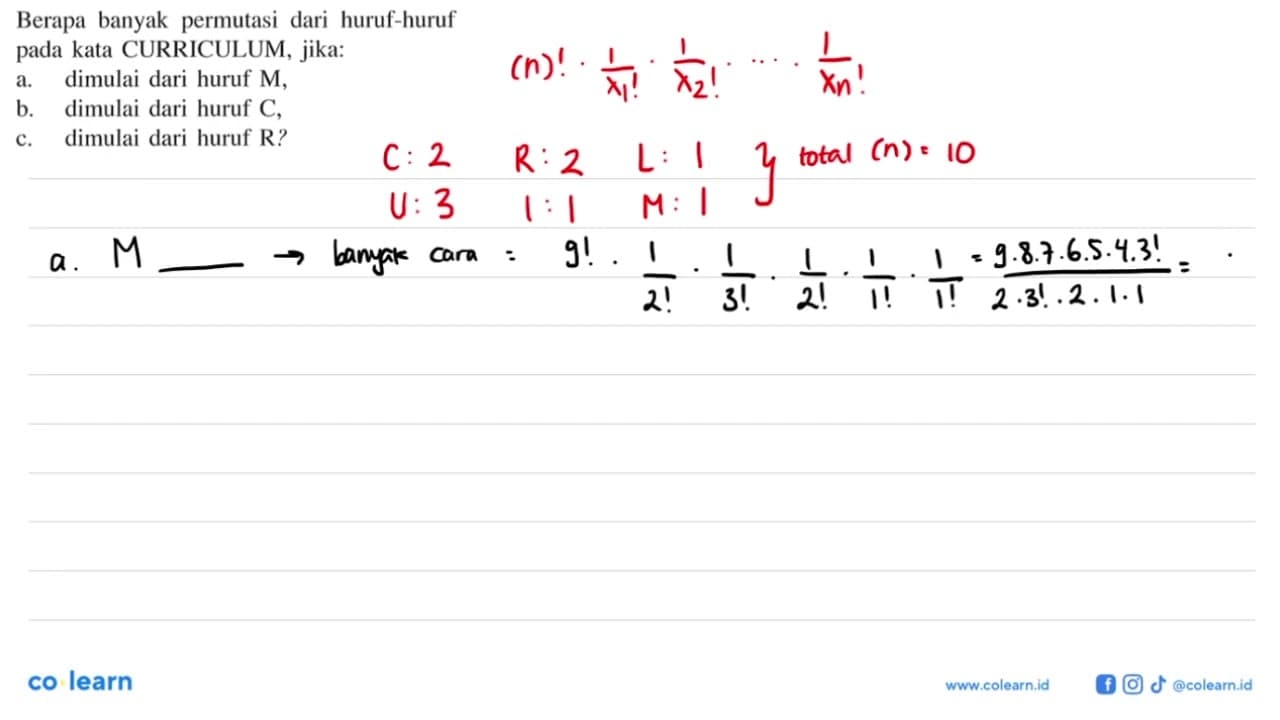 Berapa banyak permutasi dari huruf-huruf
pada kata CURRICULUM, jika:
a. dimulai dari huruf M,
b. dimulai dari huruf C,
c. dimulai dari huruf R?
(n)! · 1/x₁! · 1/x₂! · .... · 1/xₙ!
C : 2 R : 2 L : 1 } total (n) = 10
U : 3 I : 1 M : 1
a. M ___ → banyak cara = 9! · 1/2! · 1/3! · 1/2! · 1/1! · 1/1! = 9.8.7.6.5.4.3!/2.3!.2.1.1 =
co learn
www.colearn.id
@colearn.id